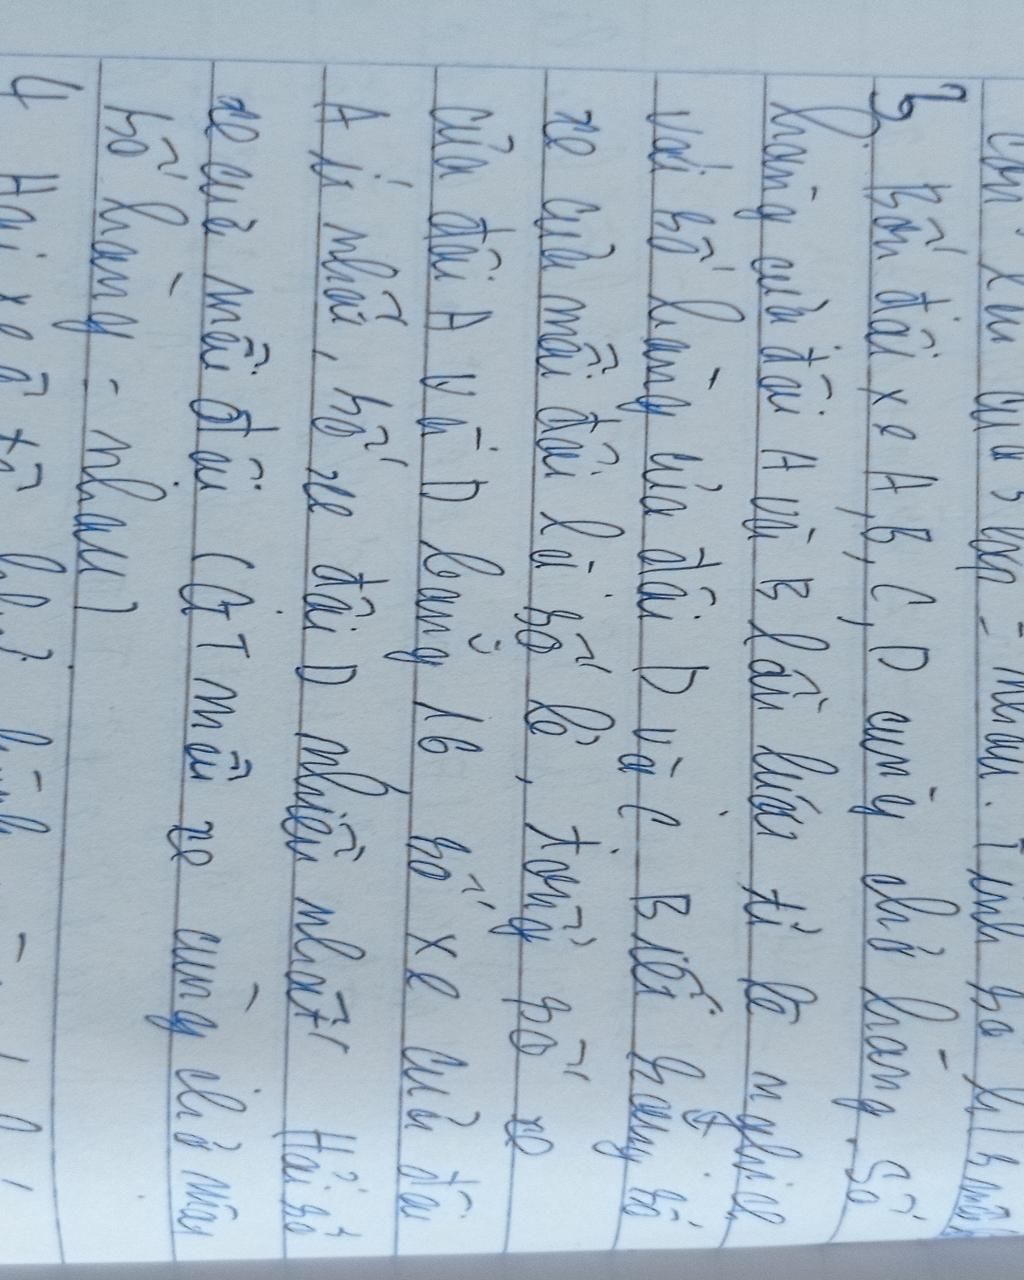 của 3 lớp = nhau. Tính số
3. Bốn đội xe A, B, C, D cùng chở hàng. Số
hàng của đội A và B lần lượt tỉ lệ nghịch
với số hàng của đội D và C Biết rằng số
xe của mỗi đội là số lẻ, tổng số xe
của đội A và D bằng 16 số xe của đội
A ít nhất, số xe đội D nhiều nhất Hỏi số
xe của mỗi đội (GT mỗi xe cùng chở một
số hàng = nhau)
4 Hai xe ô tô khởi hành